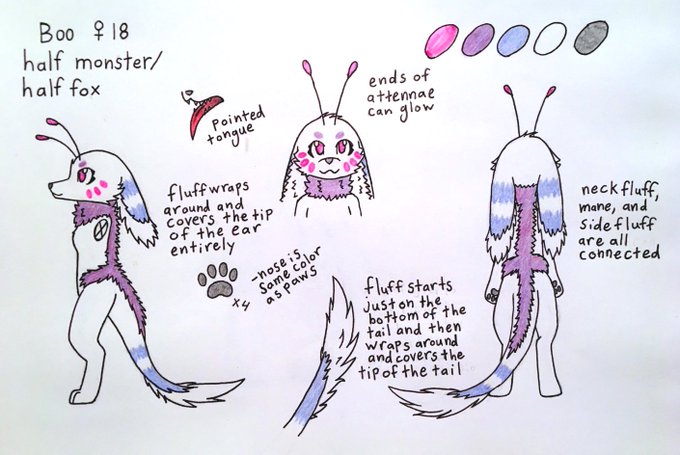 Boo ♀ 18
half monster/
half fox
pointed
tongue
ends of
attennae
can glow
fluff wraps
around and
covers the tip
of the ear
entirely
x4
-nose is
same color
as paws
fluff starts
just on the
bottom of the
tail and then
wraps around
and covers the
tip of the tail
neck fluff,
mane, and
side fluff
are all
connected